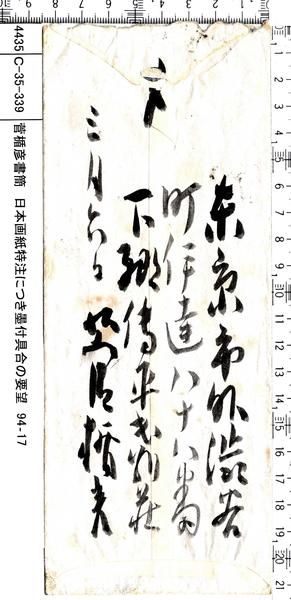 東京市外渋谷
町伊達八十八番
下郷傳平氏別荘
三月六日 菅楯彦
4435 C-35-339 菅楯彦書簡 日本画紙特注につき墨付具合の要望 94-17